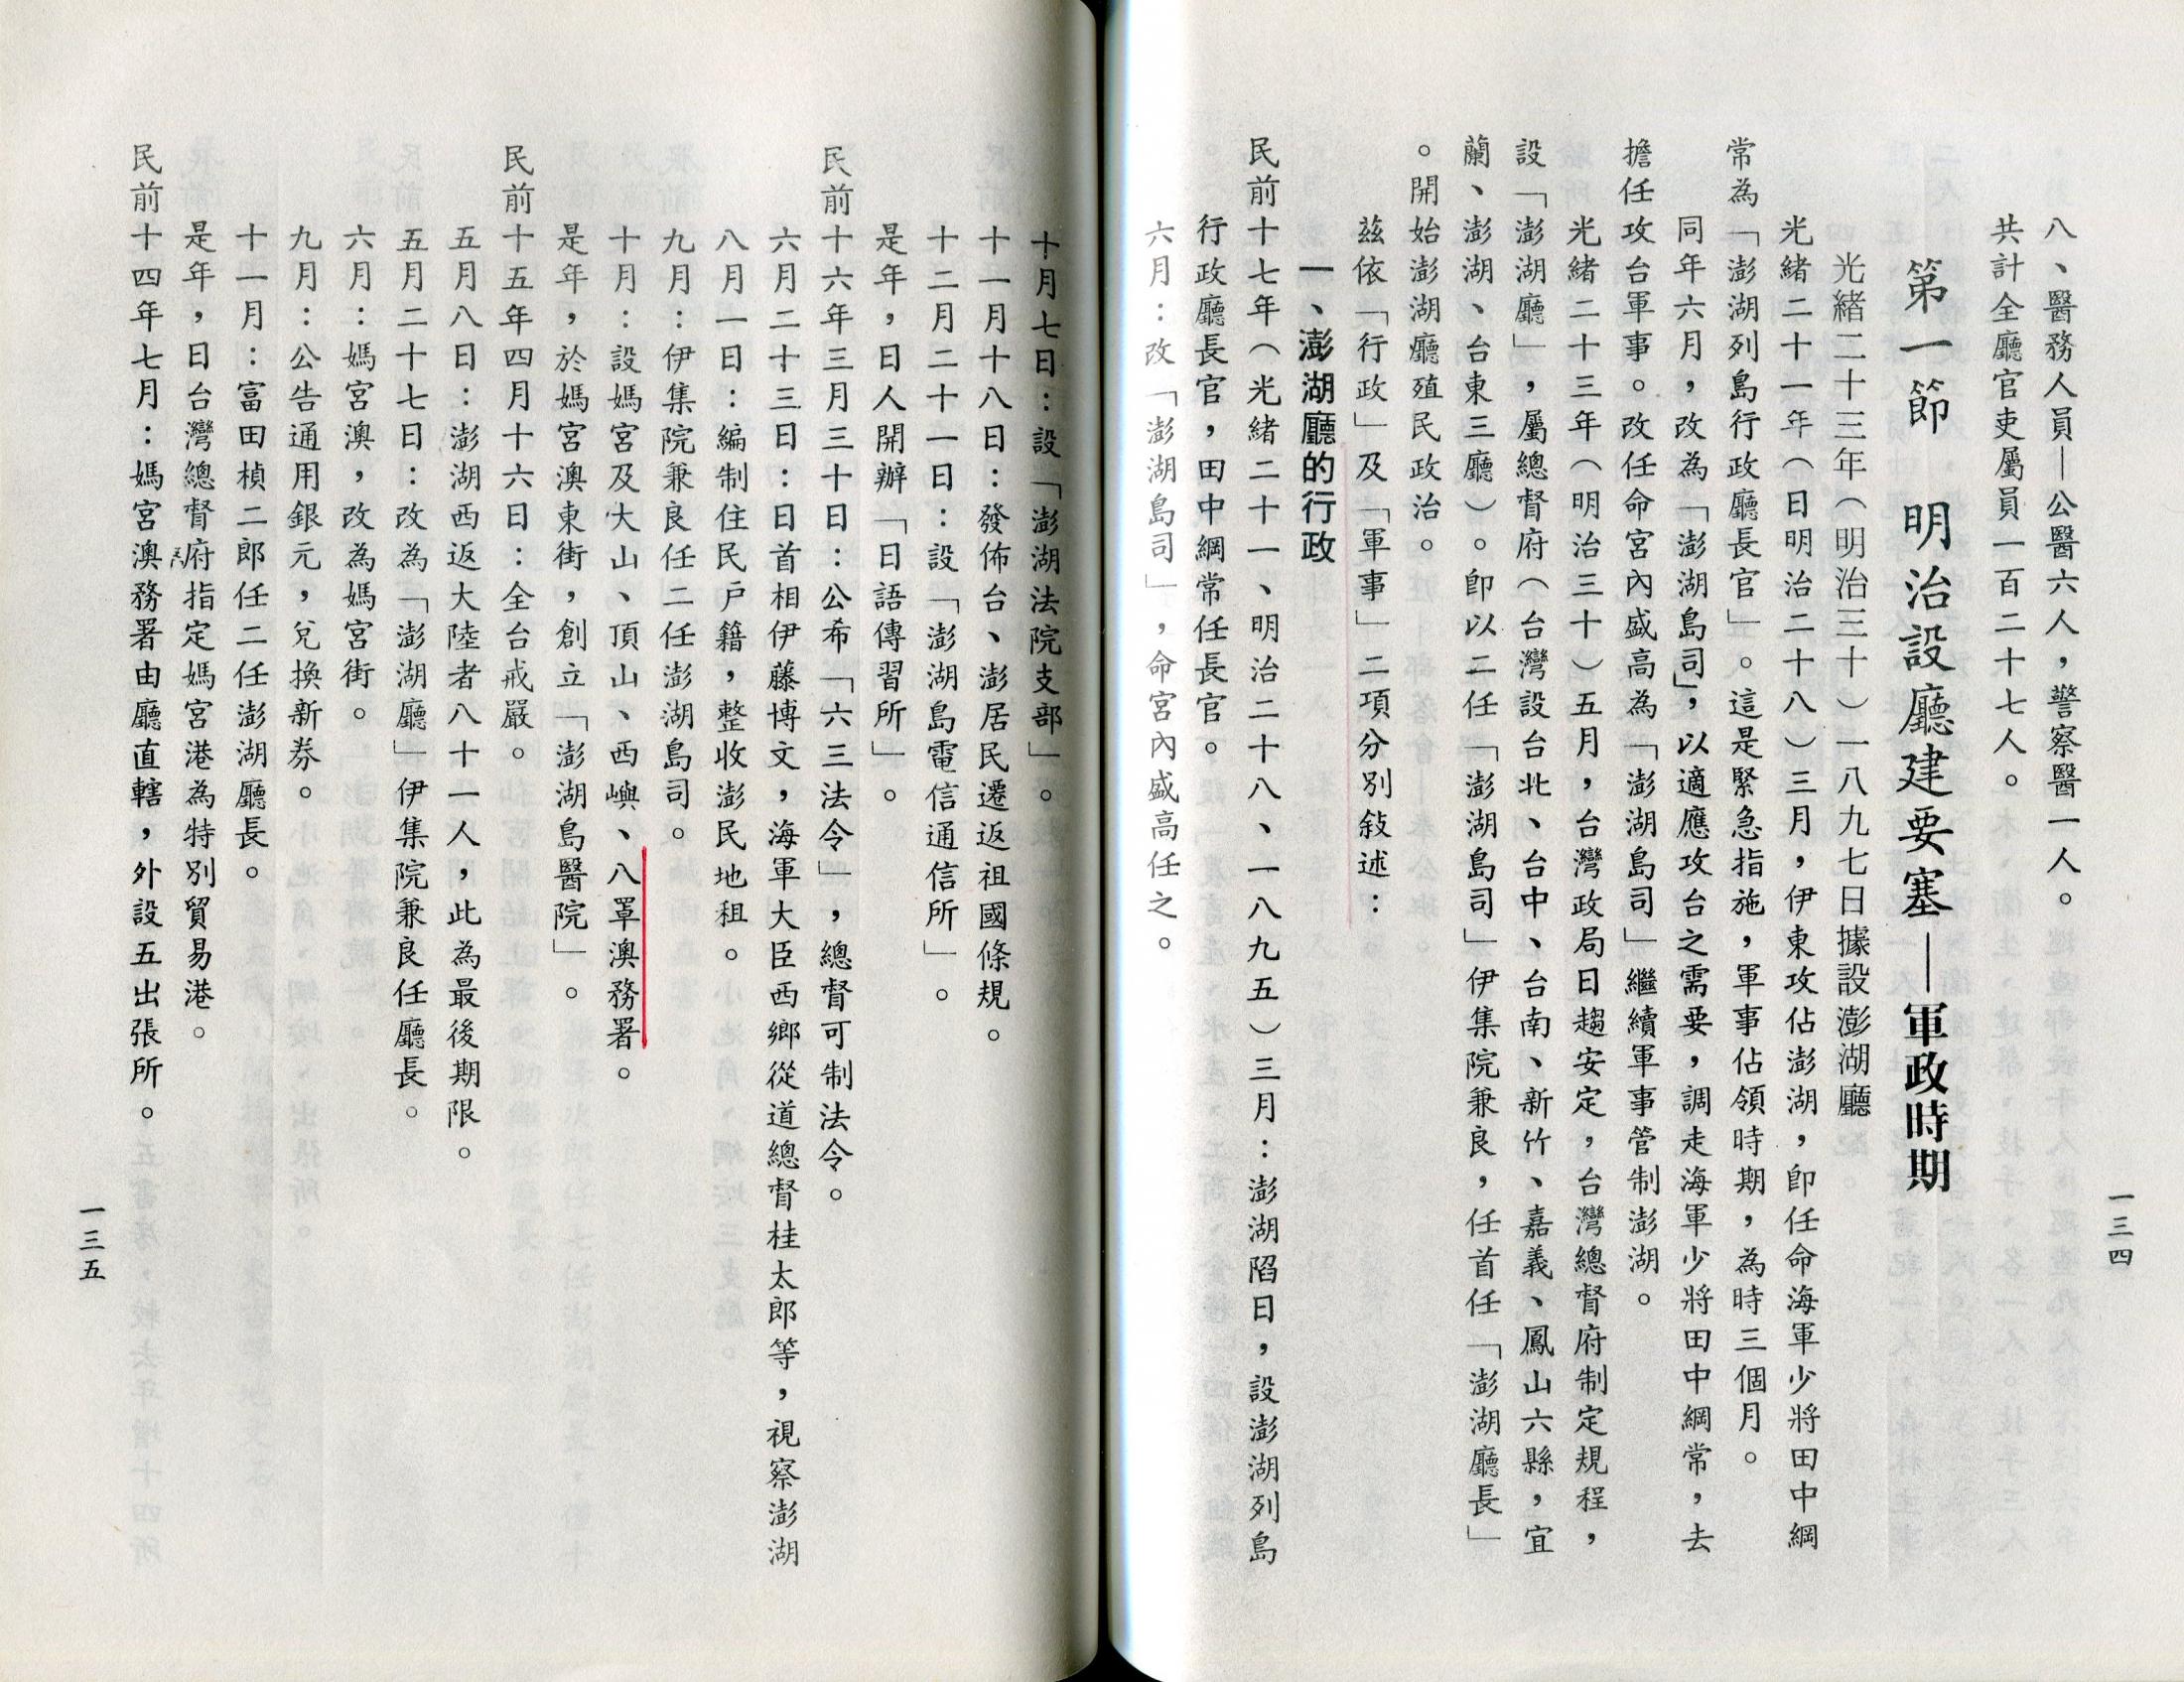 八、醫務人員—公醫六人，警察醫一人。
共計全廳官吏屬員一百二十七人。
第一節　明治設廳建要塞—軍政時期
光緒二十三年（明治三十）一八九七日據設澎湖廳
光緒二十一年（日明治二十八）三月，伊東攻佔澎湖，即任命海軍少將田中綱
常為「澎湖列島行政廳長官」。這是緊急指施，軍事佔領時期，為時三個月。
同年六月，改為「澎湖島司」，以適應攻台之需要，調走海軍少將田中綱常，去
擔任攻台軍事。改任命宮內盛高為「澎湖島司」繼續軍事管制澎湖。
光緒二十三年（明治三十）五月，台灣政局日趨安定，台灣總督府制定規程，
設「澎湖廳」，屬總督府（台灣設台北、台中、台南、新竹、嘉義、鳳山六縣，宜
蘭、澎湖、台東三廳）。即以二任「澎湖島司」伊集院兼良，任首任「澎湖廳長」
。開始澎湖廳殖民政治。
茲依「行政」及「軍事」二項分別敍述：
一、澎湖廳的行政
民前十七年（光緒二十一、明治二十八、一八九五）三月：澎湖陷日，設澎湖列島
行政廳長官，田中綱常任長官。
六月：改「澎湖島司」，命宮內盛高任之。
一三四
十月七日：設「澎湖法院支部」。
十一月十八日：發佈台、澎居民遷返祖國條規。
十二月二十一日：設「澎湖島電信通信所」。
是年，日人開辦「日語傳習所」。
民前十六年三月三十日：公布「六三法令」，總督可制法令。
六月二十三日：日首相伊藤博文，海軍大臣西鄉從道總督桂太郎等，視察澎湖
八月一日：編制住民戶籍，整收澎民地租。
九月：伊集院兼良任二任澎湖島司。
十月：設媽宮及大山、頂山、西嶼、八罩澳務署。
是年，於媽宮澳東街，創立「澎湖島醫院」。
民前十五年四月十六日：全台戒嚴。
五月八日：澎湖西返大陸者八十一人，此為最後期限。
五月二十七日：改為「澎湖廳」伊集院兼良任廳長。
六月：媽宮澳，改為媽宮街。
九月：公告通用銀元，兌換新券。
十一月：富田楨二郎任二任澎湖廳長。
是年，日台灣總督府指定媽宮港為特別貿易港。
民前十四年七月：媽宮澳務署由廳直轄，外設五出張所。
一三五